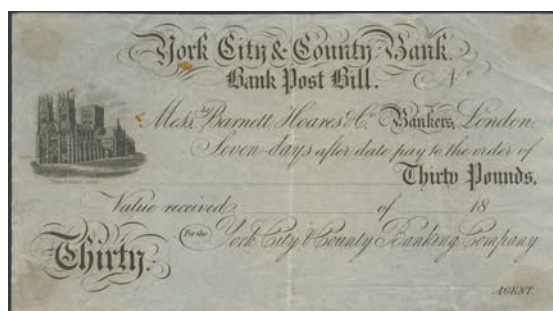 York City & County Bank.
Bank Post Bill. No
Mess. Barnett Hoares & Co. Bankers, London.
Seven days after date pay to the order of
Thirty Pounds.
Value received of 18
For the York City & County Banking Company
Thirty.
AGENT.